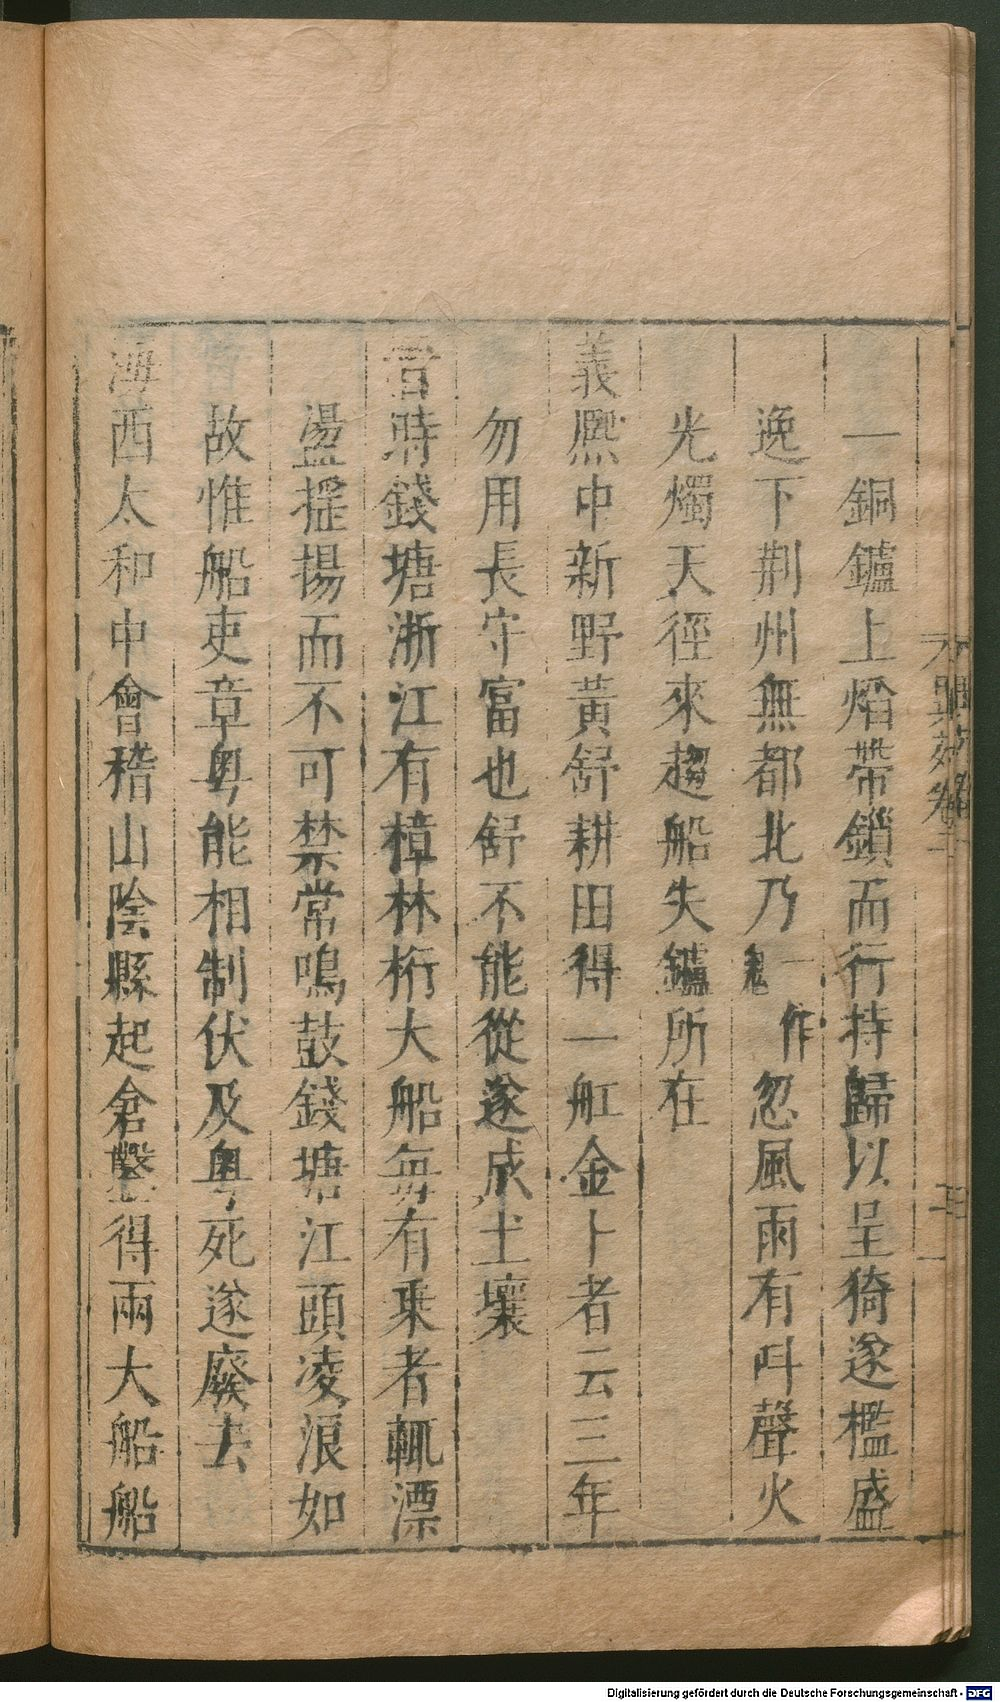 一銅鑪上焰帶鎖而行持歸以呈猗遂檻盛
逸下荆州無都北乃一作鬼忽風雨有呌聲火
光燭天徑來趨船失鑪所在
義熙中新野黃舒耕田得一舡金卜者云三年
勿用長守富也舒不能從遂成土壤
晉時錢塘浙江有樟林桁大船每有乘者輒漂
盪搖揚而不可禁常鳴鼓錢塘江頭凌浪如
故惟船吏章粤能相制伏及粤死遂廢去
海西太和中會稽山陰縣起倉鑿得兩大船船
異苑卷二
Digitalisierung gefördert durch die Deutsche Forschungsgemeinschaft - DFG